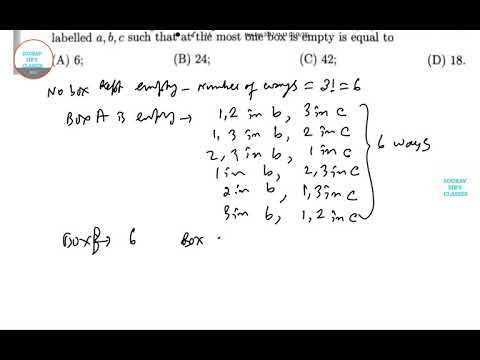 SOURAV SIR'S CLASSES
labelled a, b, c such that at the most one box is empty is equal to
(A) 6; (B) 24; (C) 42; (D) 18.
No box kept empty – number of ways = 3! = 6
Box A is empty → 1,2 in b, 3 in c
1,3 in b, 2 in c
2,3 in b, 1 in c
1 in b, 2,3 in c
2 in b, 1,3 in c
3 in b, 1,2 in c
6 ways
SOURAV SIR'S CLASSES
Box B → 6 Box